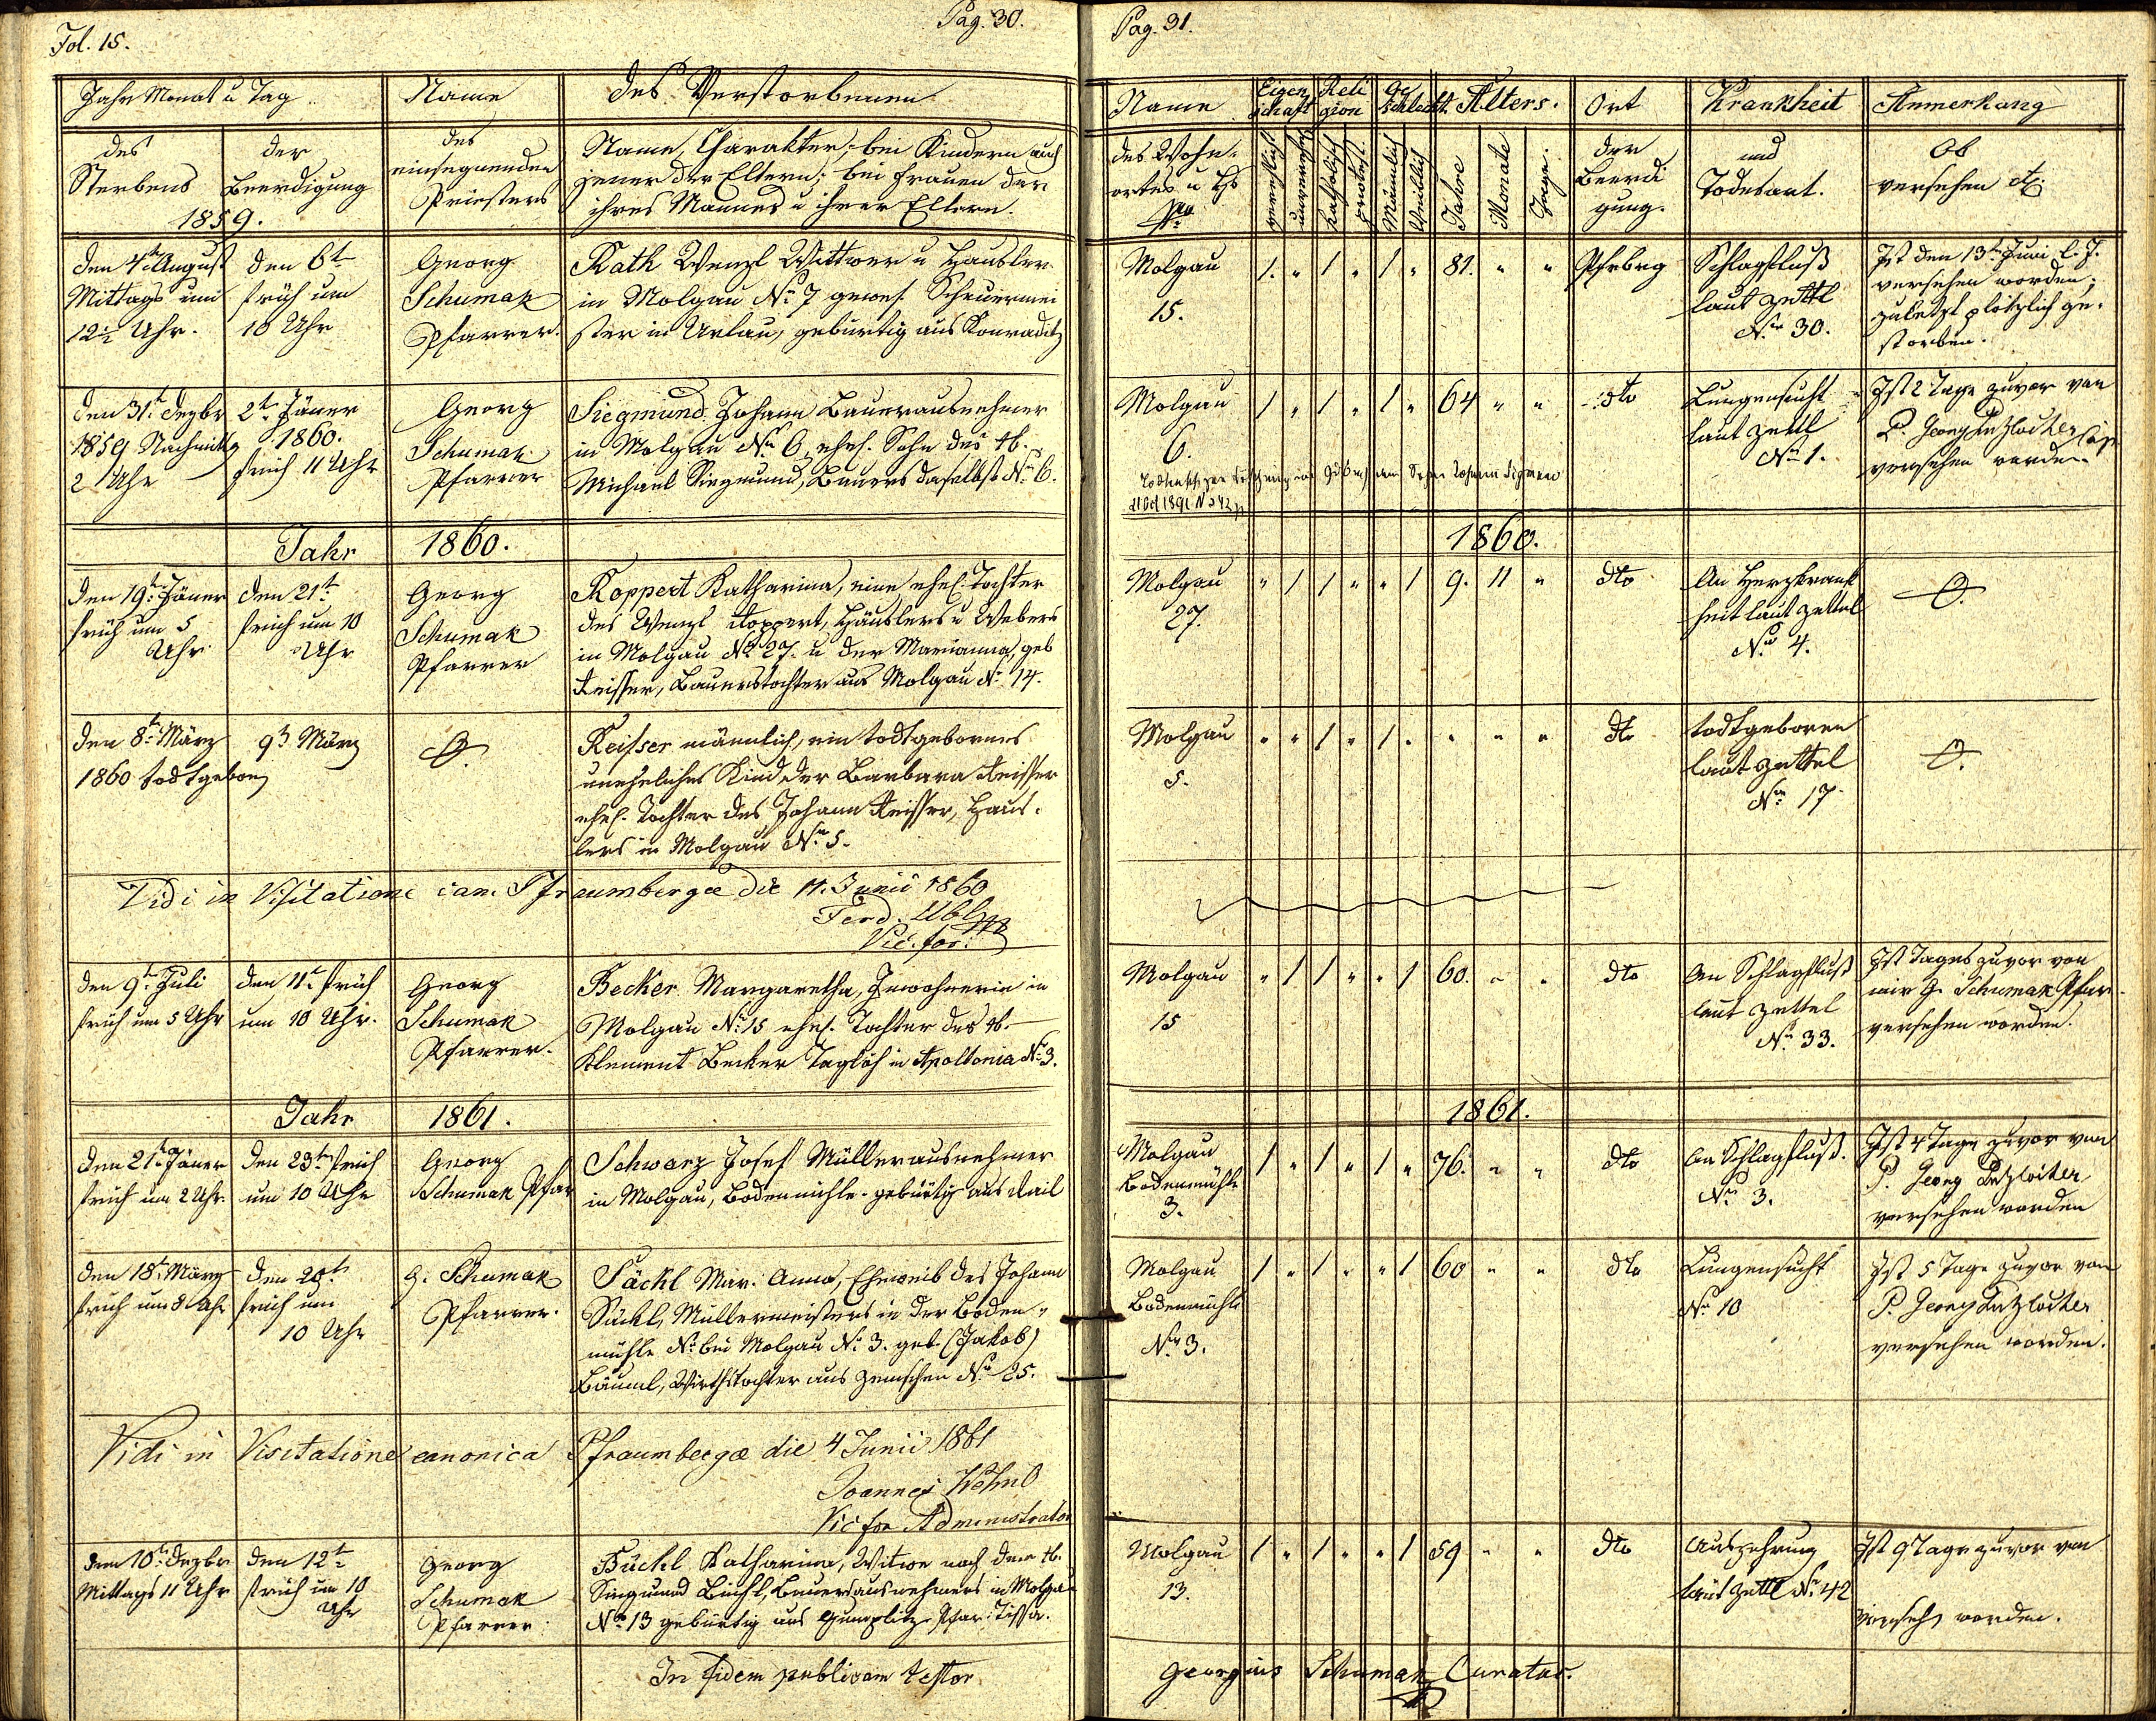 Fol. 15.
Pag. 30.
Jahr Monat u Tag
Name
des Verstorbenen
des
Sterbens
der
Beerdigung
1859.
des
einsegnenden
Priesters
Name, Charakter, bei Kindern auch
jener der Eltern; bei Frauen der
ihres Mannes u ihrer Eltern.
den 4t August
Mittags um
12½ Uhr.
den 6t
früh um
10 Uhr
Georg
Schumak
Pfarrer.
Rath Wenzl Wittwer u Häusler
in Molgau No 7 gewes. Scheuermei
ster in Urlau, gebürtig aus Konraditz
den 31t Dezbr
1859 Nachmittg
2 Uhr
2t Jäner
1860.
früh 11 Uhr
Georg
Schumak
Pfarrer
Siegmund Johann Bauerausnehmer
in Molgau No 6, ehel. Sohn des †b.
Michael Siegmund, Bauers daselbst No 6.
Jahr 1860.
den 19t Jäner
früh um 5
Uhr
den 21t
früh um 10
Uhr
Georg
Schumak
Pfarrer
Koppert Katharina, eine ehel. Tochter
des Wenzl Koppert, Häuslers u Webers
in Molgau No 27. u der Marianna, geb
Keisser, Bauerstochter aus Molgau No 14.
den 8t März
1860 todtgeboren
9t März
O.
Keisser männlich, ein todtgebornes
uneheliches Kind der Barbara Keisser
ehel. Tochter des Johann Keisser, Häus-
lers in Molgau No 5.
Vidi in Visitatione can. Pfraumbergae die 11. Junii 1860
Ferd. Ubl
Vic. for.
den 9t Juli
früh um 5 Uhr
den 11t früh
um 10 Uhr.
Georg
Schumak
Pfarrer.
Becker Margaretha, Inwohnerin in
Molgau No 15 ehel. Tochter des †b.
Klement Becker Taglöh in Apollonia No 3.
Jahr 1861.
den 21t Jäner
früh um 2 Uhr
den 23t früh
um 10 Uhr
Georg
Schumak Pfar
Schwarz Josef Müllerausnehmer
in Molgau, Bodenmühle gebürtig aus
den 18t März
früh um 8 Uhr
den 20t
früh um
10 Uhr
G. Schumak
Pfarrer.
Säckl Mar. Anna, Eheweib des Johann
Säckl, Müllermeisters in der Boden-
mühle No bei Molgau No 3. geb. (Jakob)
Bäuml, Wirthstochter aus Zemschen No 25.
Vidi in Visitatione canonica Pfraumbergae die 4 Junii 1861
Joannes Wöhrl
Vic for Administrator
den 10t Dezbr
Mittags 11 Uhr
den 12t
früh um 10
Uhr
Georg
Schumak
Pfarrer
Büchl Katharina, Witwe nach dem †b.
Siegmund Büchl, Bauersausnehmers in Molgau
No 13 gebürtig aus Gumplitz Pfar. Tissa.
In fidem publicam testor
Pag. 31.
Name
Eigen
schaft
Reli
gion
Ge
schlecht.
Alters.
Ort
Krankheit
Anmerkung
des Wohn-
ortes u Hs
No
verehlich
unverehel
katholisch
protest.
Männlich
Weiblich
Jahre
Monate
Tage.
der
Beerdi
gung.
und
Todesart.
Ob
versehen etc
Molgau
15.
1. " 1 " 1 " 81. " "
Pfrbrg
Schlagfluß
laut Zettl
Nro 30.
Ist den 13t Juni l. J.
versehen worden;
zuletzt plötzlich ge-
storben.
Molgau
6.
1 " 1 " 1 " 64 " "
dto
Lungensucht
laut Zettl
No 1.
Ist 2 Tage zuvor von
P. Georg
versehen worden
1891 N 242
1860.
Molgau
27.
" 1 1 " " 1 9. 11 "
dto
An Herzkrank
heit laut Zettel
No 4.
O.
Molgau
5.
" " 1 " 1 " " " "
dto
todtgeboren
laut Zettel
No 17.
O.
Molgau
15
" 1 1 " " 1 60. " "
dto
An Schlagfluß
laut Zettel
No 33.
Ist Tags zuvor von
mir G. Schumak Pfar
versehen worden.
1861.
Molgau
Bodenmühle
3.
1 " 1 " 1 " 76. " "
dto
An Schlagfluß.
No 3.
Ist 4 Tage zuvor von
P. Georg
versehen worden
Molgau
Bodenmühle
No 3.
1 " 1 " " 1 60 " "
dto
Lungensucht
No 10
Ist 5 Tage zuvor von
P. Georg
versehen worden.
Molgau
13.
1 " 1 " " 1 59 " "
dto
Auszehrung
laut Zettl No 42
Ist 9 Tage zuvor von
versehen worden.
Georgius Schumak Curatus.